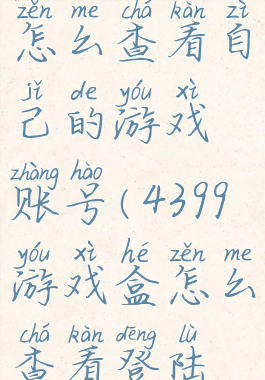 zěn me chá kàn zì
怎么查看自
jǐ de yóu xì
己的游戏
zhàng hào
账号(4399
yóu xì hé zěn me
游戏盒怎么
chá kàn dēng lù
查看登陆